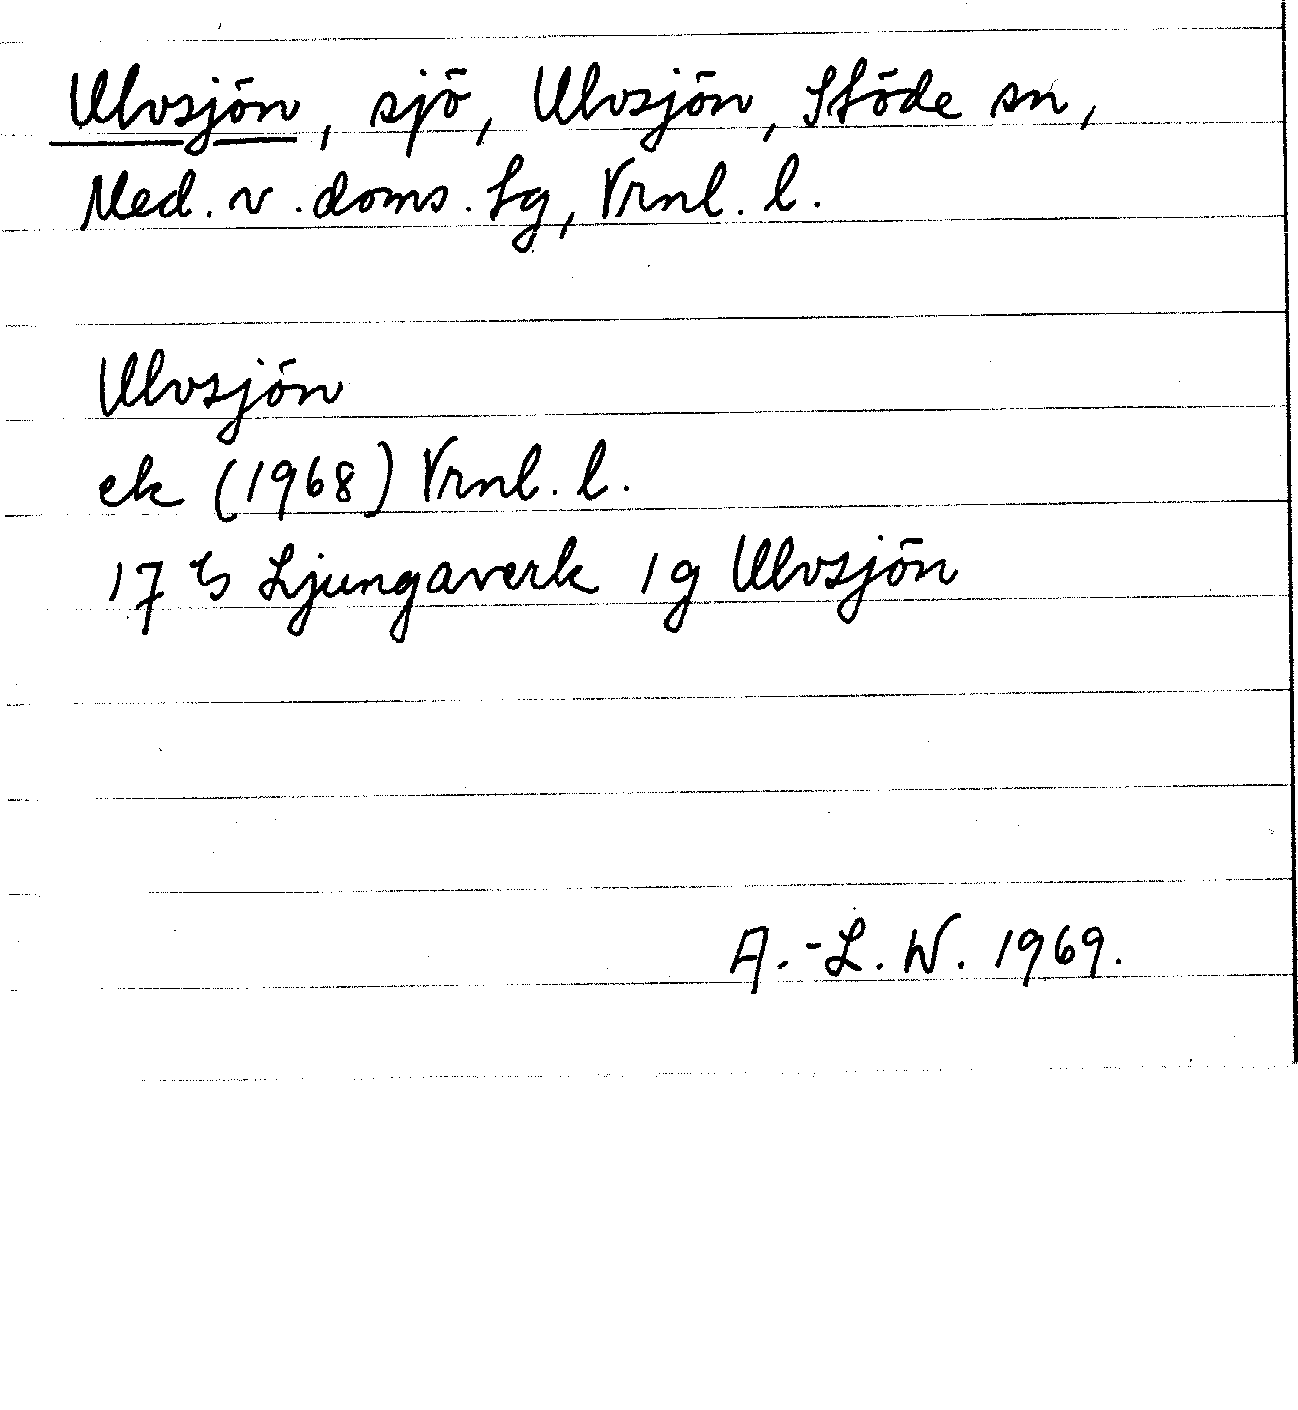 Ulvsjön, sjö, Ulvsjön, Stöde sn,
Med. v. doms. tg, Vrnl. l.
Ulvsjön
ek (1968) Vrnl. l.
17 G Ljungaverk 1g Ulvsjön
A.-L. W. 1969.